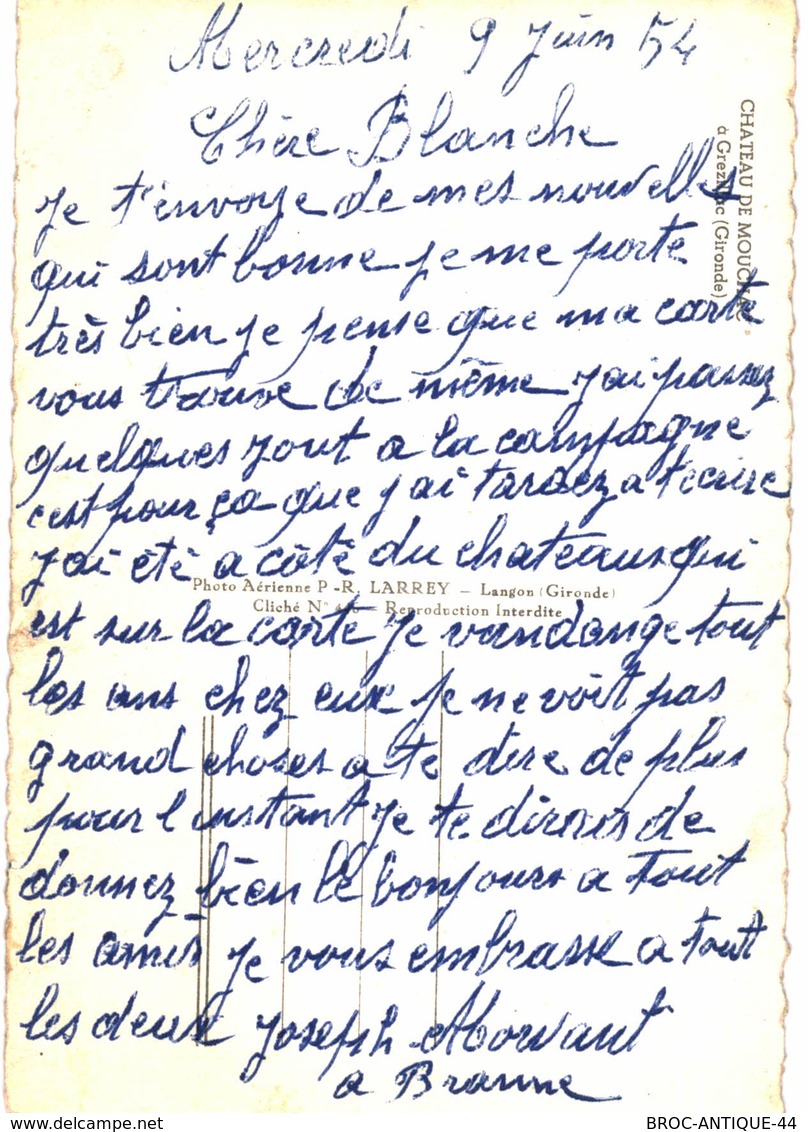 Mercredi 9 Juin 54
Chère Blanche
Je t'envoye de mes nouvelles
qui sont bonne je me porte
très bien je pense que ma carte
vous trouve de même j'ai passez
quelques jout a la campagne
c'est pour ça que j'ai tardez a t'ecrire
j'ai été a côté du chateaus qui
est sur la carte je vandange tout
les ans chez eux je ne voit pas
grand choses a te dire de plus
pour l'instant je te dirais de
donnez bien le bonjours a tout
les amis je vous embrasse a tout
les deux Joseph Morvant
a Branne
CHATEAU DE
à Grezillac (Gironde)
Photo Aérienne P.-R. LARREY — Langon (Gironde)
Cliché N° — Reproduction Interdite
BROC-ANTIQUE-44